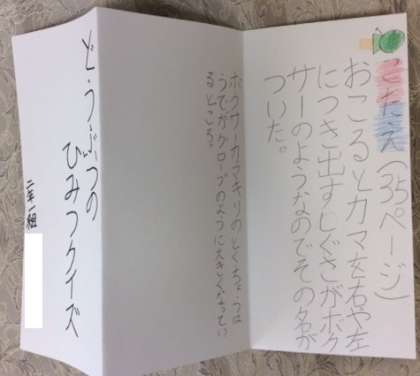 こたえ(35ページ)
おこるとカマを右や左
につき出すしぐさがボク
サーのようなのでその名が
ついた。
ボクサーカマキリのとくちょうは
うでがグローブのように大きくなってい
るところ。
どうぶつの
ひみつクイズ
二年一組